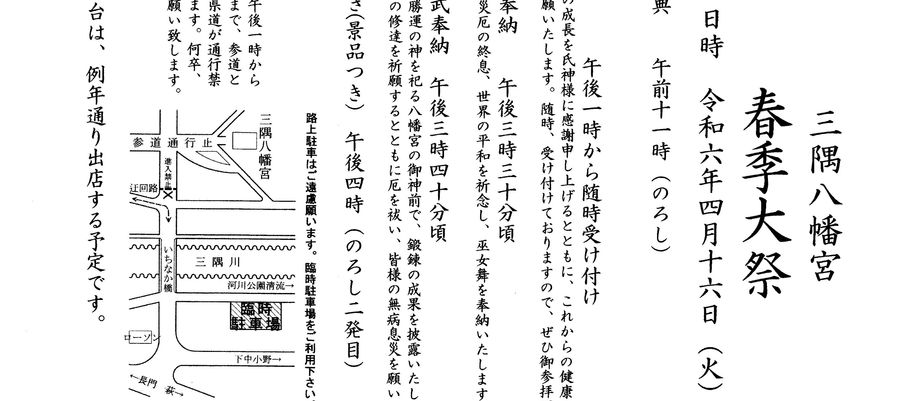 三隅八幡宮
春季大祭
日時　令和六年四月十六日（火）
典　午前十一時（のろし）
午後一時から随時受け付け
の成長を氏神様に感謝申し上げるとともに、これからの健康
願いたします。随時、受け付けておりますので、ぜひ御参拝
奉納　午後三時三十分頃
災厄の終息、世界の平和を祈念し、巫女舞を奉納いたします
武奉納　午後三時四十分頃
勝運の神を祀る八幡宮の御神前で、鍛錬の成果を披露いたし
の修達を祈願するとともに厄を祓い、皆様の無病息災を願い
き（景品つき）　午後四時（のろし二発目）
路上駐車はご遠慮願います。臨時駐車場をご利用下さい。
三隅八幡宮
参道通行止
進入禁止
迂回路
いちなか橋
三隅川
河川公園清流→
臨時
駐車場
ローソン
下中小野→
←長門
萩→
午後一時から
まで、参道と
県道が通行禁
ます。何卒、
願い致します。
台は、例年通り出店する予定です。